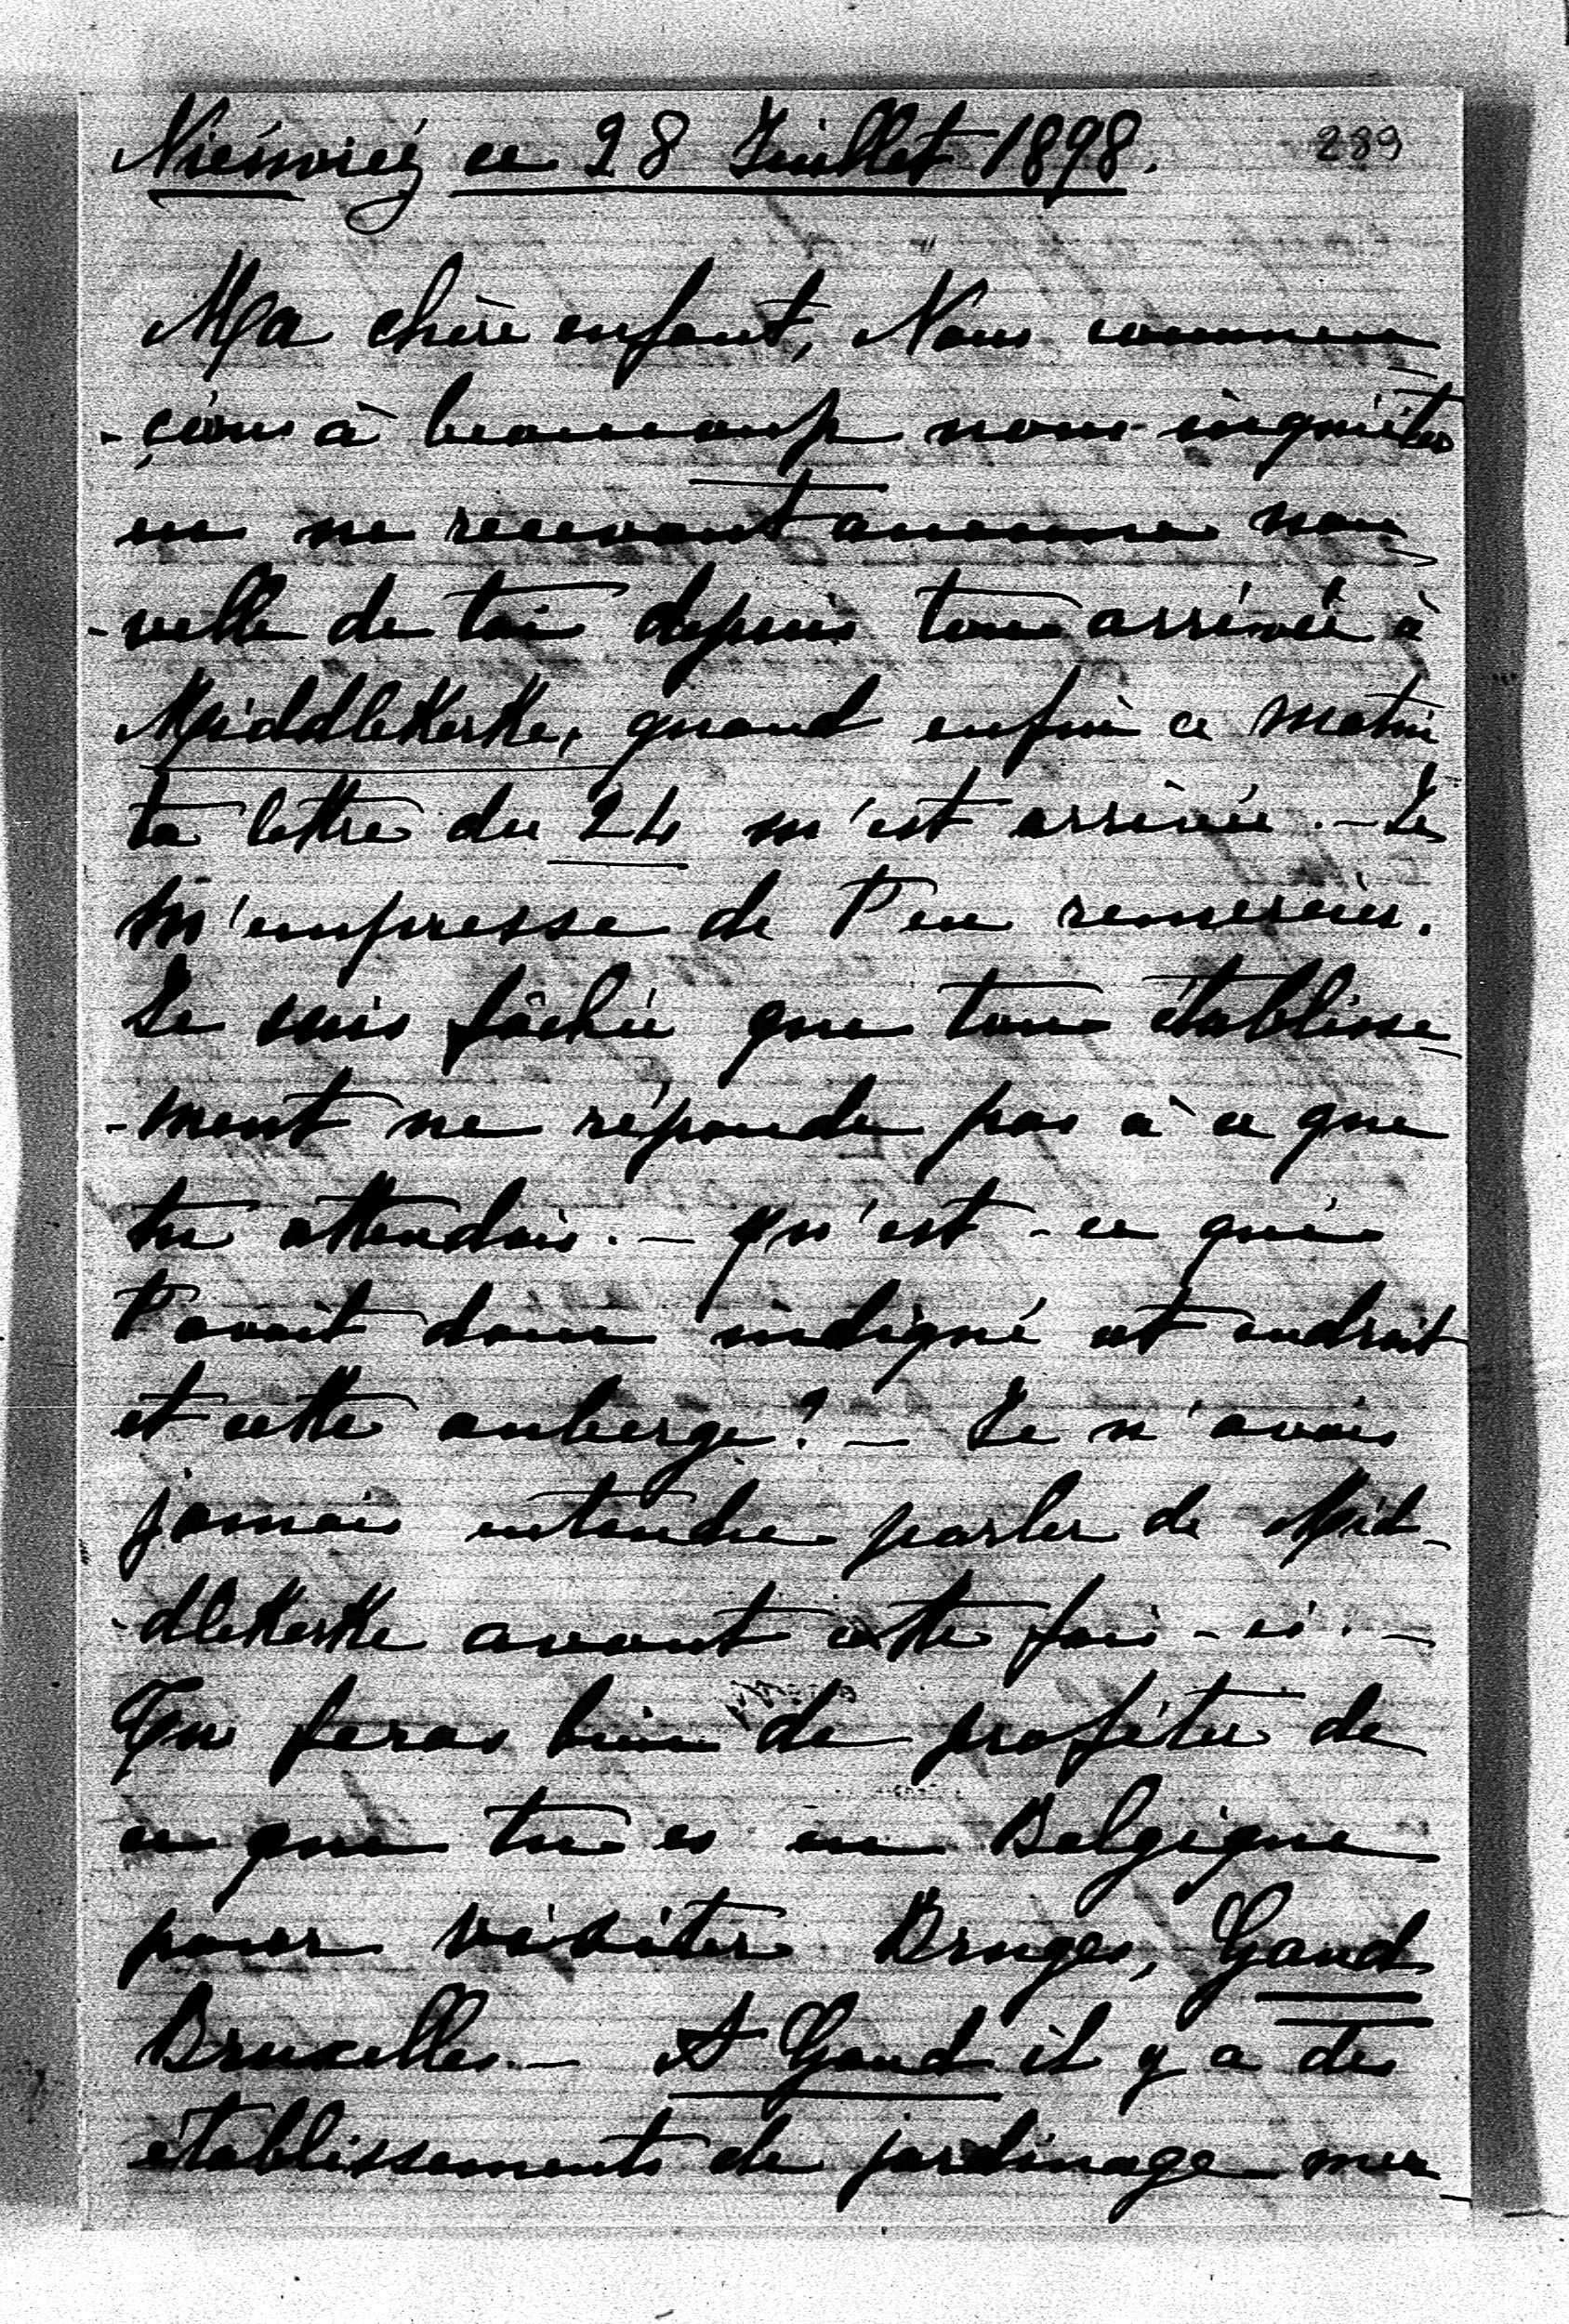 Niésvież ce 28 Juillet 1898.
289
Ma chère enfant, Nous commen-
-çions à beaucoup nous inquiéter
en ne recevant aucune nou-
-velle de toi depuis ton arrivée à
Middlekerke, quand enfin ce matin
ta lettre du 24 m'est arrivée. - Je
m'empresse de t'en remercier.
Je suis fâchée que ton établisse-
-ment ne réponde pas à ce que
tu attendais. - Qu'est-ce qui
t'avait donc indigné cet endroit
et cette auberge? - Je n'avais
jamais entendu parler de Mid-
-dlekerke avant cette fois-ci. -
Tu feras bien de profiter de
ce que tu es en Belgique
pour visiter Bruges, Gand
Bruxelles. - A Gand il y a des
établissements de jardinage mer-